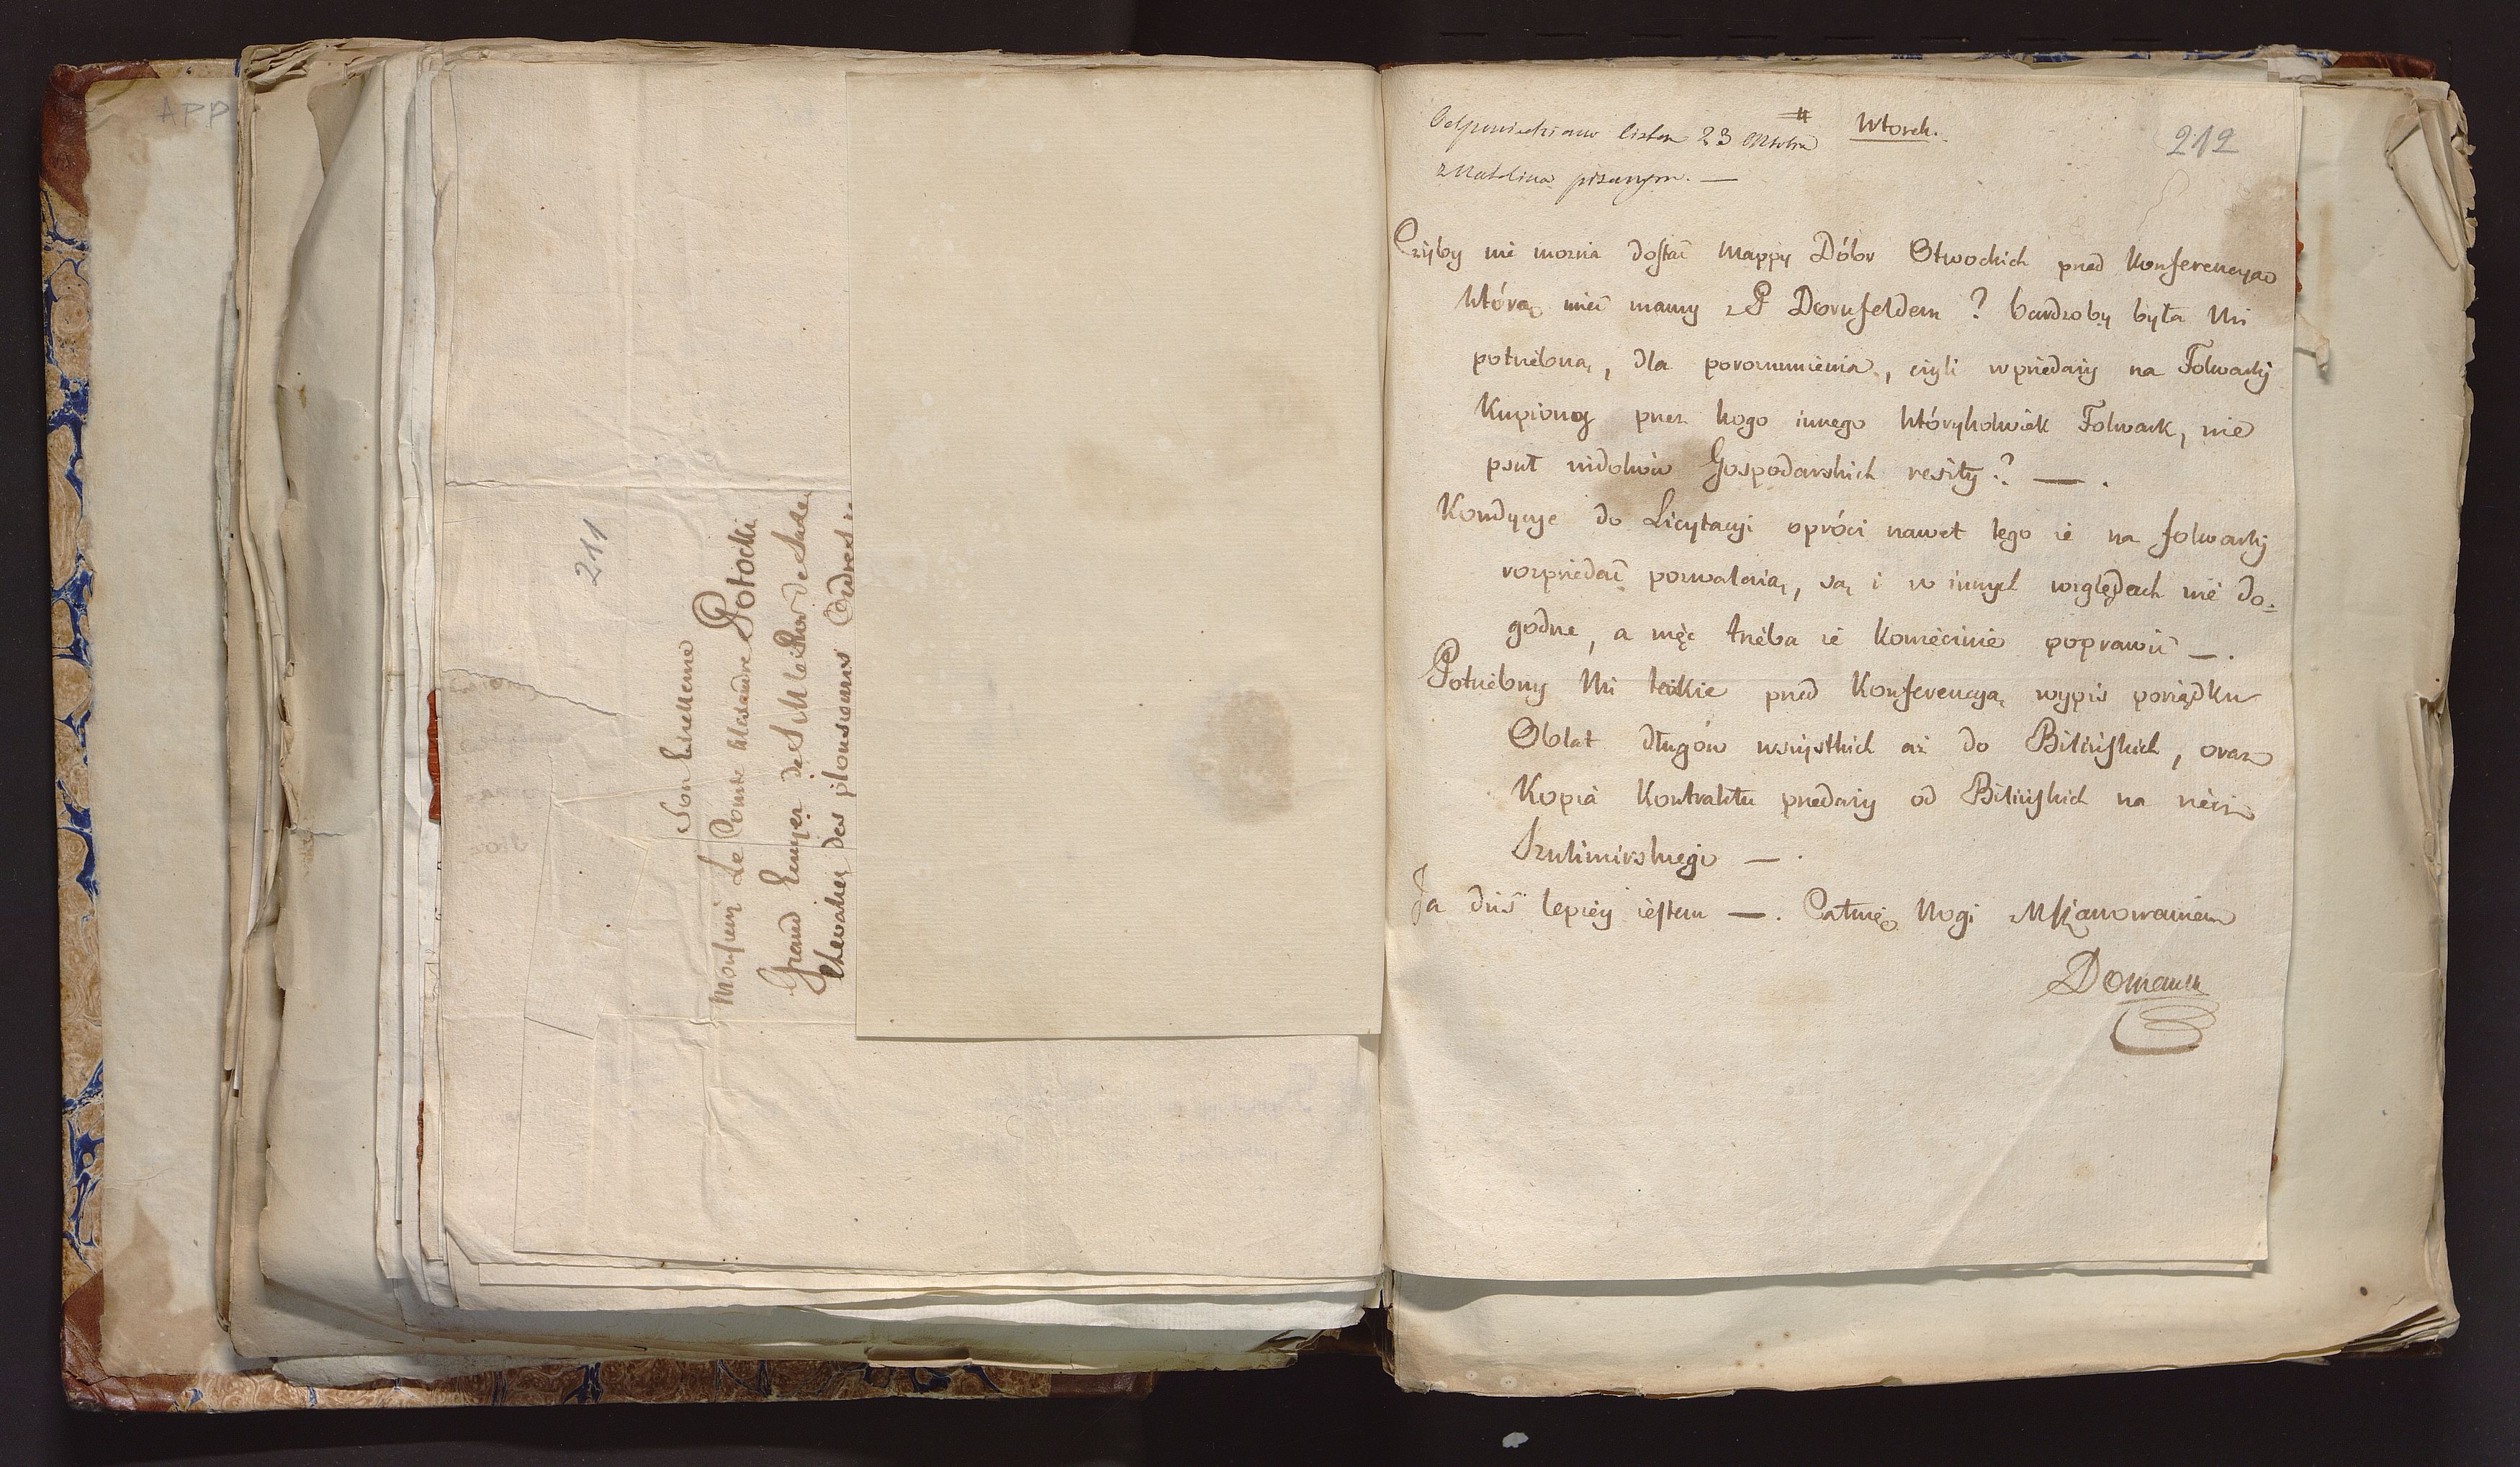 APP
211
Son Excellence
Monsieur Le Comte Alexandre Potocki
Grand Ecuyer de S. M. Le Roi de Saxe
Chevalier des plousieurs Ordres
Odpowiedziano listem 23 Oktobra
z Natolina pisanym. —
# Wtorek.
212
Czyby nie można dostać Mappy Dóbr Otwockich przed Konferencyą
którą mieć mamy z P Dornfeldem ? bardzoby była Mi
potrzebną, dla porozumienia, czyli w przedaży na Folwarki
Kupiony przez kogo innego którykolwiek Folwark, nie
psuł widoków Gospodarskich reszty ? — .
Kondycyje do Licytacyi oprócz nawet tego że na folwarki
rozprzedać pozwalaią, są i w innych względach nie do=
godne, a więc trzeba ie koniecznie poprawić — .
Potrzebny Mi także przed Konferencyą wypis porządku
Oblat długów wszystkich aż do Bilińskich, oraz
Kopia Kontraktu przedaży od Bilińskich na rzecz
Szulimirskiego — .
Ja dziś lepiéy iestem — . Całuię Nogi z Uszanowaniem